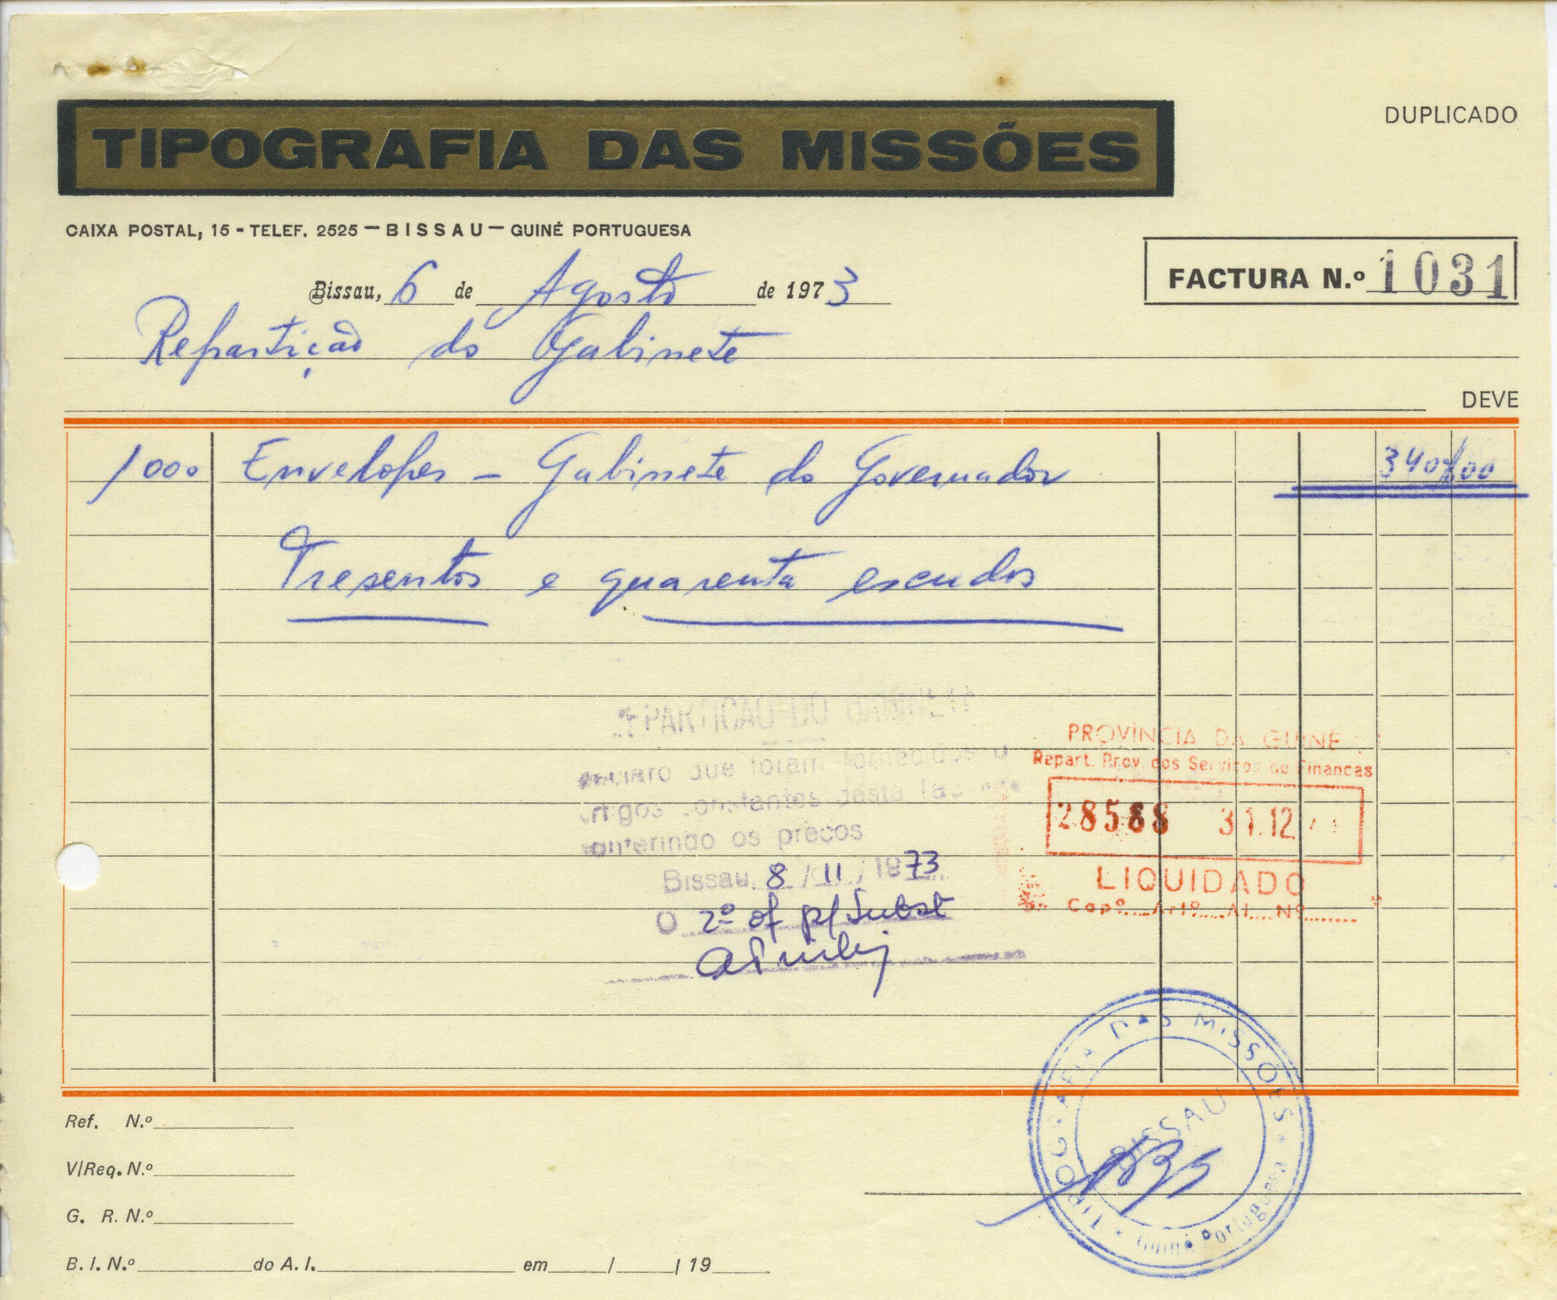 DUPLICADO
TIPOGRAFIA DAS MISSÕES
CAIXA POSTAL, 15 - TELEF. 2525 — BISSAU — GUINÉ PORTUGUESA
FACTURA N.º 1031
Bissau, 6 de Agosto de 1973
Repartição do Gabinete
DEVE
1000 Envelopes - Gabinete do Governador 340$00
Tresentos e quarenta escudos
PARTIÇÃO DO
que foram
constantes desta
os preços
Bissau, 8/11/1973
O 2º of p/ Subst
PROVÍNCIA DA GUINÉ
Repart. Prov. dos Serviços de Finanças
28588 31.12
LIQUIDADO
Capº Artº Al. Nº
TIPOGRAFIA DAS MISSÕES
BISSAU
Guiné Portuguesa
Ref. N.º
V/Req. N.º
G. R. N.º
B. I. N.º do A. I. em / / 19